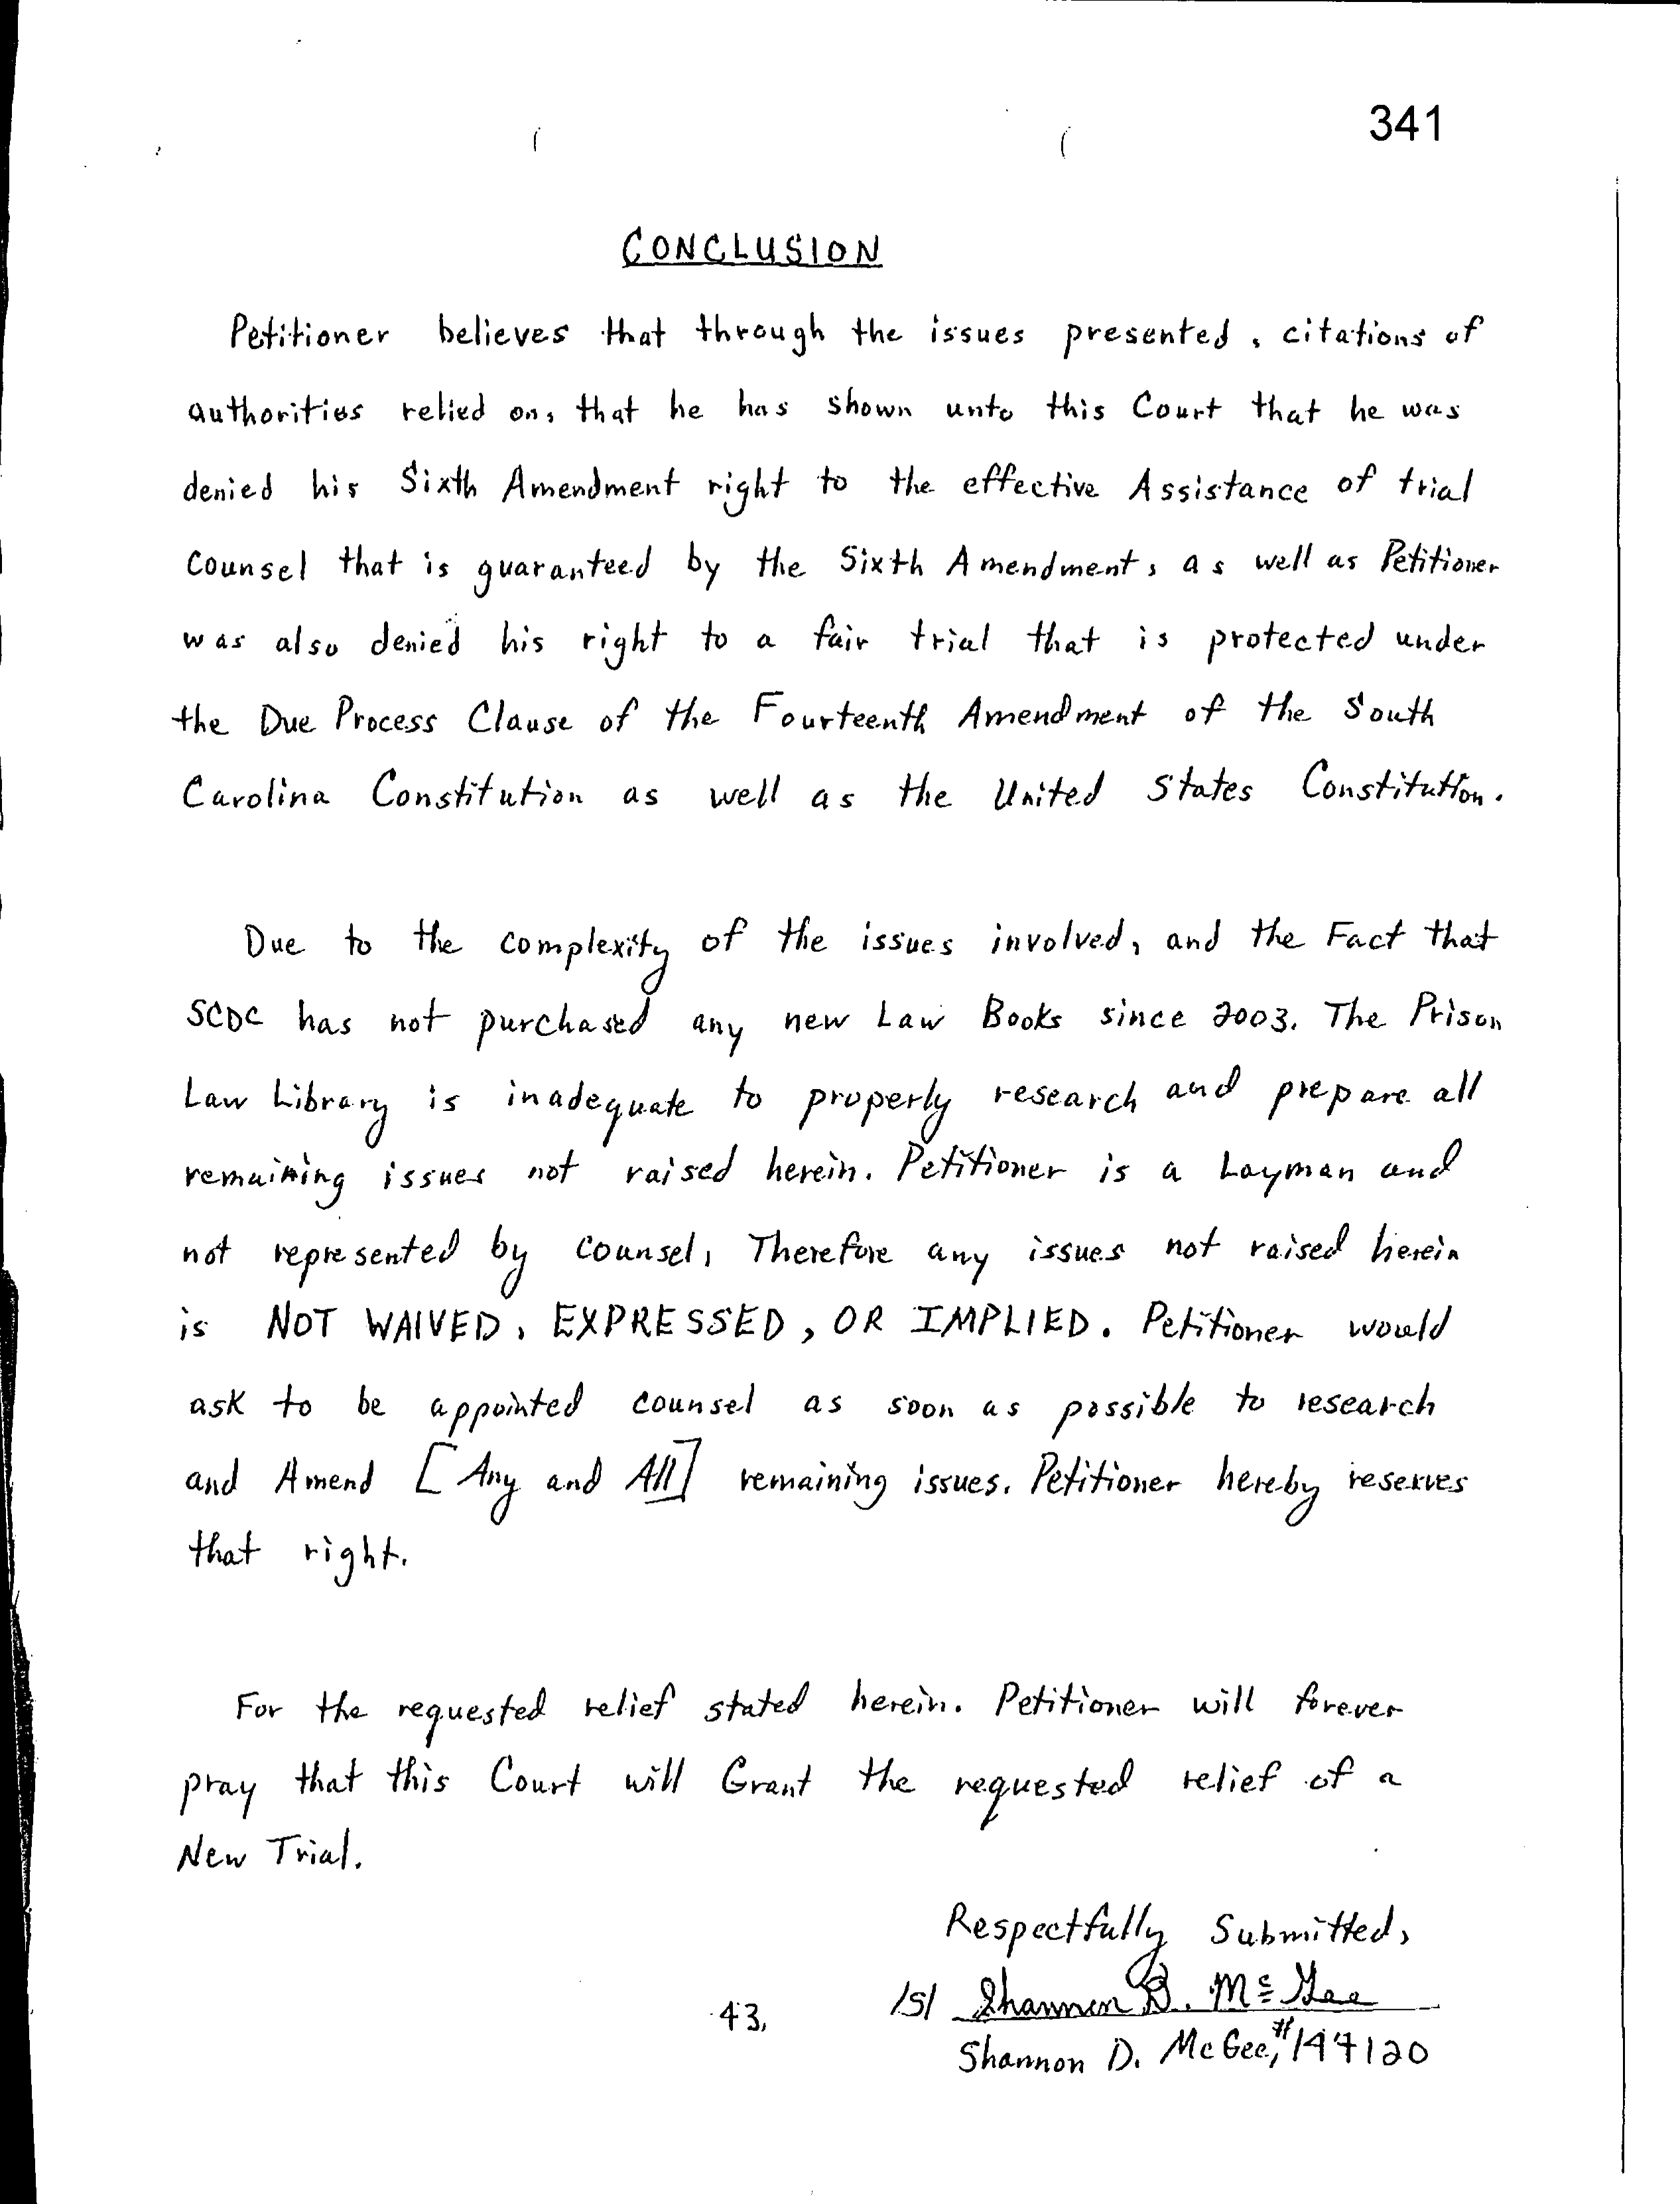 341
CONCLUSION
Petitioner believes that through the issues presented, citations of
authorities relied on, that he has shown unto this Court that he was
denied his Sixth Amendment right to the effective Assistance of trial
Counsel that is guaranteed by the Sixth Amendment, as well as Petitioner
was also denied his right to a fair trial that is protected under
the Due Process Clause of the Fourteenth Amendment of the South
Carolina Constitution as well as the United States Constitution.
Due to the complexity of the issues involved, and the Fact that
SCDC has not purchased any new Law Books since 2003. The Prison
Law Library is inadequate to properly research and prepare all
remaining issues not raised herein. Petitioner is a Layman and
not represented by counsel, Therefore any issues not raised herein
is NOT WAIVED, EXPRESSED, OR IMPLIED. Petitioner would
ask to be appointed counsel as soon as possible to research
and Amend [Any and All] remaining issues. Petitioner hereby reserves
that right.
For the requested relief stated herein. Petitioner will forever
pray that this Court will Grant the requested relief of a
New Trial.
Respectfully Submitted,
/s/ Shannon D. McGee
43.
Shannon D. McGee, #197120